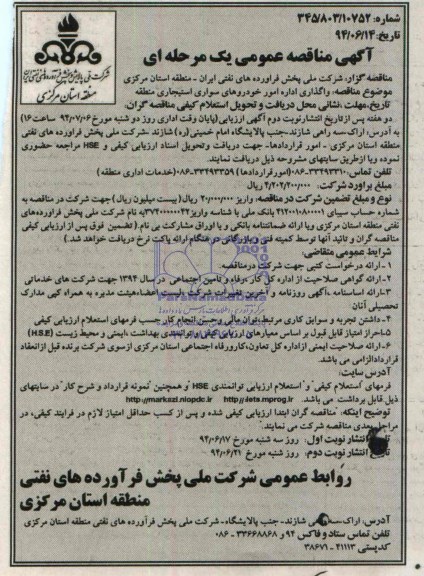 شماره: ۳۴۵/۸۰۳/۱۰۷۵۲
تاریخ: ۹۴/۰۶/۱۴
آگهی مناقصه عمومی یک مرحله ای
شرکت ملی پخش فرآورده های نفتی ایران
منطقه استان مرکزی
مناقصه گزار: شرکت ملی پخش فرآورده های نفتی ایران - منطقه استان مرکزی
موضوع مناقصه: واگذاری اداره امور خودروهای سواری استیجاری منطقه
تاریخ، مهلت، نشانی محل دریافت و تحویل استعلام کیفی مناقصه گران:
دو هفته پس از تاریخ انتشار نوبت دوم آگهی ارزیابی (پایان وقت اداری روز دو شنبه مورخ ۹۴/۰۷/۰۶ ساعت ۱۶)
به آدرس: اراک-سه راهی شازند-جنب پالایشگاه امام خمینی (ره) شازند-شرکت ملی پخش فرآورده های نفتی
منطقه استان مرکزی - امور قراردادها- جهت دریافت وتحویل اسناد ارزیابی کیفی و HSE مراجعه حضوری
نموده ویا از طریق سایتهای مشروحه ذیل دریافت نمایند.
تلفن تماس: ۳۳۴۹۳۳۱۰-۰۸۶ (امور قراردادها) ۳۳۴۹۳۳۵۹-۰۸۶ (خدمات اداری منطقه)
مبلغ برآورد شرکت: ۴/۲۰۲/۲۰۰/۰۰۰ ریال
نوع و مبلغ تضمین شرکت در مناقصه: واریز ۲۰/۰۰۰/۰۰۰ ریال (بیست میلیون ریال) جهت شرکت در مناقصه به
شماره حساب سیبای ۴۱۲۰۰۱۰۸۰۰۰۰۱ بانک ملی با شناسه واریز ۳۷۲۰۰۰۰۰۰۴۲ به نام شرکت ملی پخش فرآورده‌های
نفتی منطقه استان مرکزی ویا ارائه ضمانتنامه بانکی و یا اوراق مشارکت بی نام. ( تضمین فوق پس از ارزیابی کیفی
مناقصه گران و تائید آنها توسط کمیته فنی وبازرگانی در هنگام ارائه پاکت نرخ دریافت خواهد شد.)
شرایط عمومی متقاضی:
۱- ارائه درخواست کتبی جهت شرکت درمناقصه
۲-ارائه گواهی صلاحیت از اداره کل کار، رفاه و تامین اجتماعی در سال ۱۳۹۴ جهت شرکت های خدماتی
۳-ارائه اساسنامه، آگهی روزنامه و آخرین تغییرات شرکت و لیست اعضاء هیئت مدیره به همراه کپی مدارک
تحصیلی آنان
۴- داشتن تجربه و سوابق کاری مرتبط، توان مالی وحسن انجام کار حسب فرمهای استعلام ارزیابی کیفی
۵-احراز امتیاز قابل قبول بر اساس معیارهای ارزیابی کیفی و توانمندی بهداشت، ایمنی و محیط زیست (H.S.E)
۶-ارائه صلاحیت ایمنی ازاداره کل تعاون، کارورفاه اجتماعی استان مرکزی ازسوی شرکت برنده قبل ازانعقاد
قراردادالزامی می باشد.
آدرس سایت:
فرمهای "استعلام کیفی" و "استعلام ارزیابی توانمندی HSE" و همچنین "نمونه قرارداد و شرح کار" در سایتهای
ذیل قابل برداشت می باشد. http://iets.mporg.ir http://markazi.niopdc.ir
توضیح اینکه: "مناقصه گران ابتدا ارزیابی کیفی شده و پس از کسب حداقل امتیاز لازم در فرایند کیفی، در
مراحل بعدی مناقصه شرکت می نمایند."
تاریخ انتشار نوبت اول: روز سه شنبه مورخ ۹۴/۰۶/۱۷
تاریخ انتشار نوبت دوم: روز شنبه مورخ ۹۴/۰۶/۲۱
روابط عمومی شرکت ملی پخش فرآورده های نفتی
منطقه استان مرکزی
آدرس: اراک-سه راهی شازند- جنب پالایشگاه - شرکت ملی پخش فرآورده های نفتی منطقه استان مرکزی
تلفن تماس ستاد و فاکس ۹۴ و ۳۳۶۶۸۸۶۸ - ۰۸۶
کدپستی ۴۱۱۱۳ - ۳۸۶۷۱
ParsNamadData